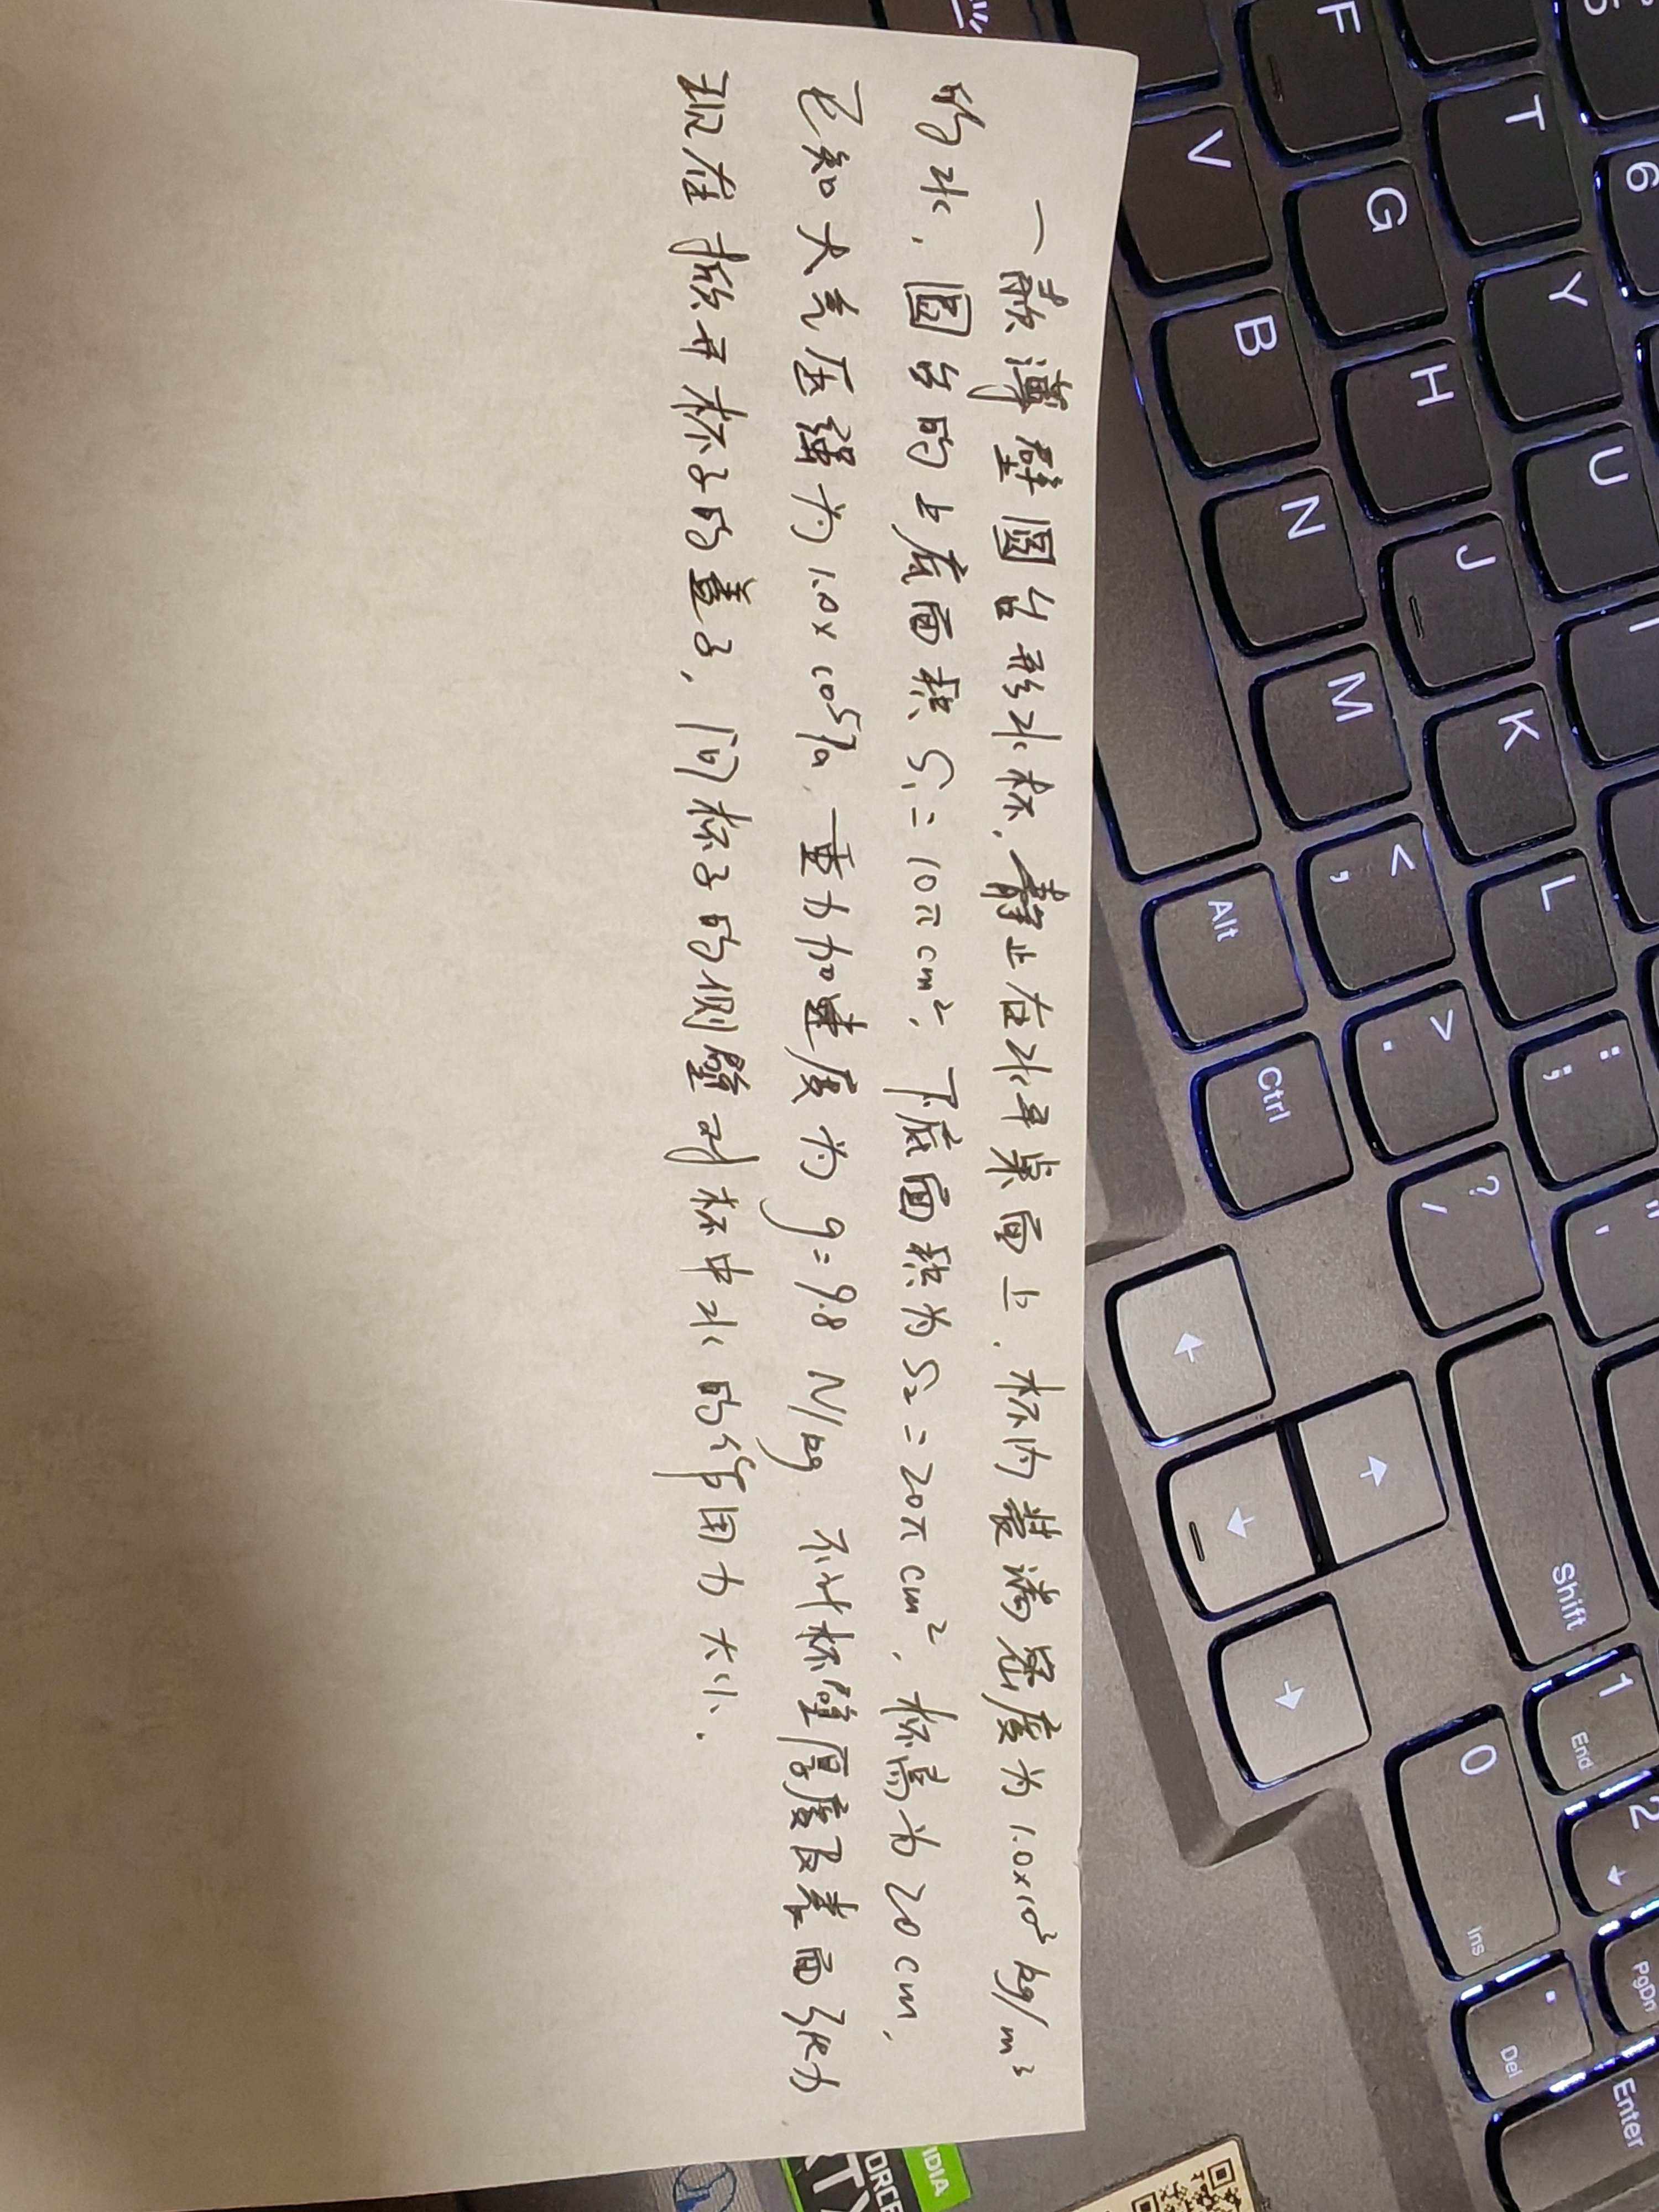 一款薄壁圆台形水杯,静止在水平桌面上.杯内装满密度为1.0×10³kg/m³
的水,圆台的上底面积S₁=10πcm²,下底面积为S₂=20πcm²,杯高为20cm,
已知大气压强为1.0×10⁵Pa,重力加速度为g=9.8N/kg.不计杯壁厚度及表面张力.
现在掀开杯子的盖子,问杯子的侧壁对杯中水的作用力大小.
F
T
6
5
V
G
Y
B
H
U
N
J
I
M
K
< ,
L
Alt
> .
: ;
Ctrl
? /
" '
←
↑
↓
→
Shift
1 End
2 ↓
0 Ins
. Del
PgDn
Enter
NVIDIA
GEFORCE
RTX